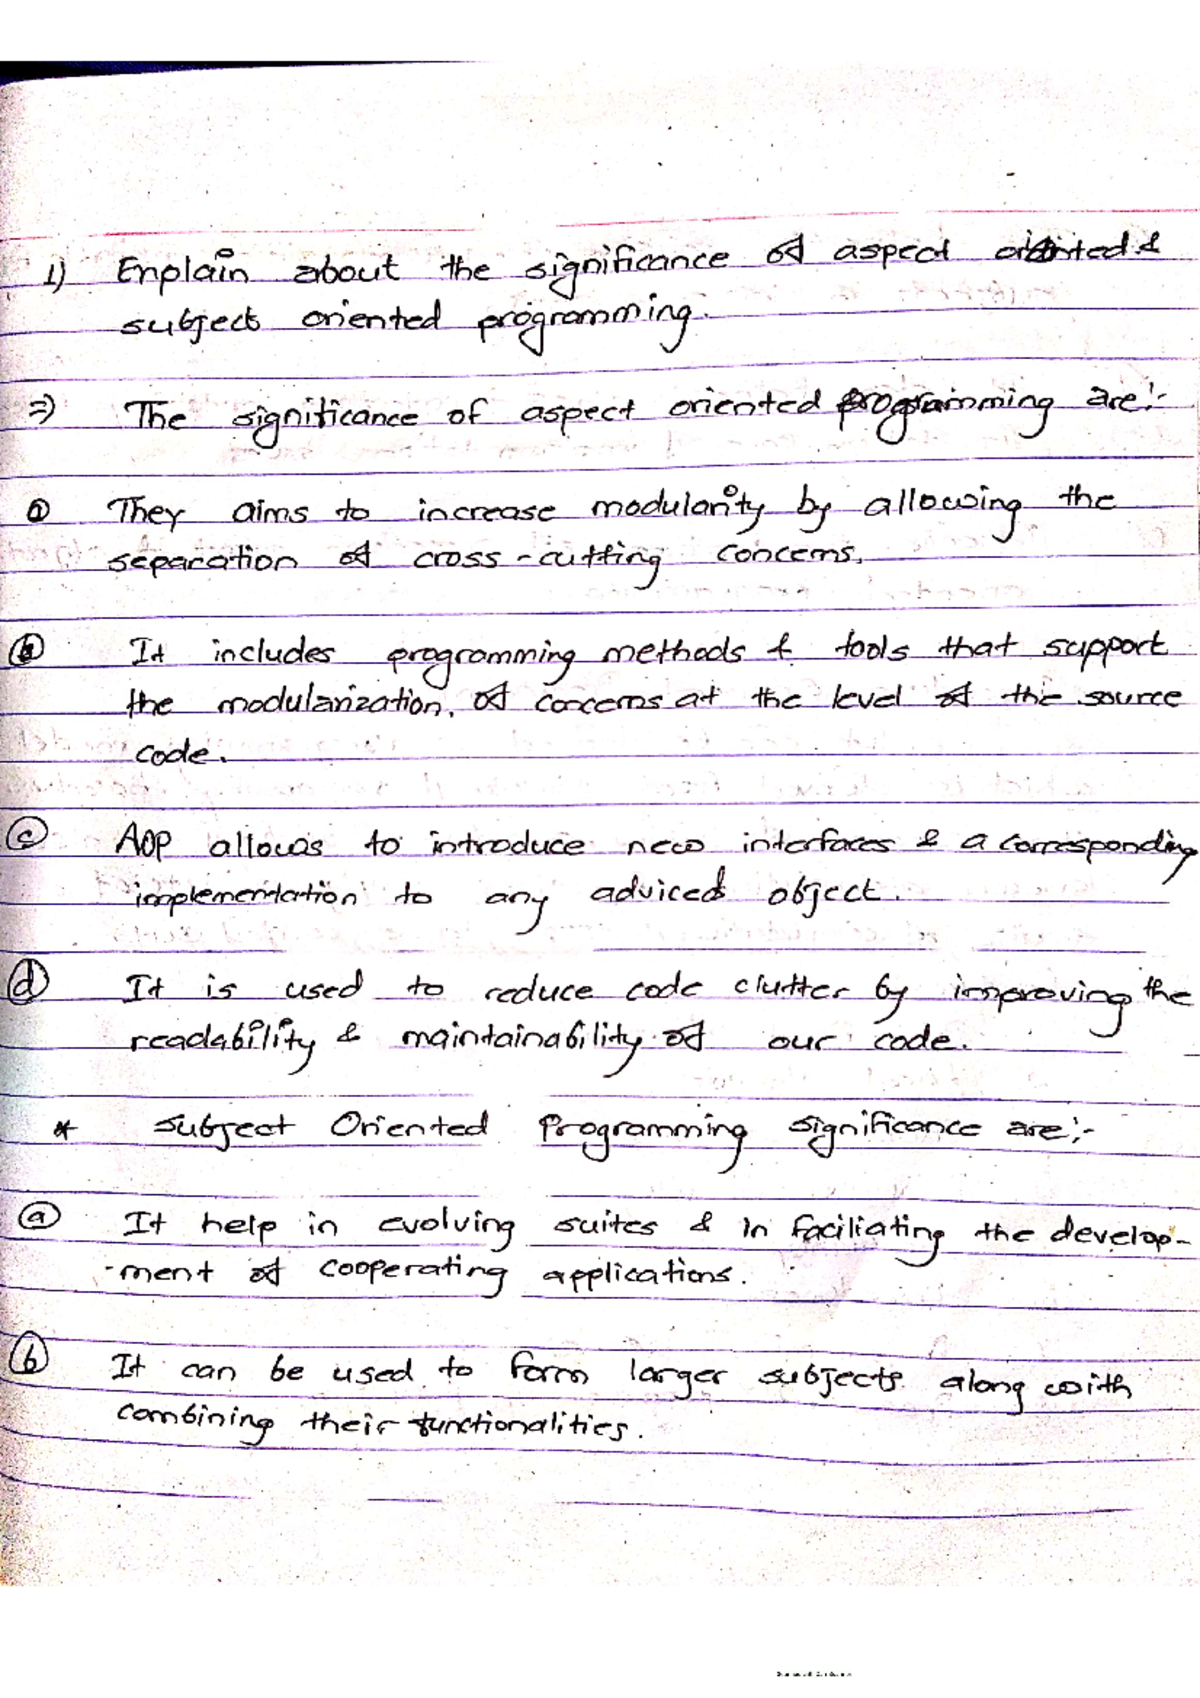 1) Explain about the significance of aspect oriented &
subject oriented programming.
=) The significance of aspect oriented programming are:-
a They aims to increase modularity by allowing the
separation of cross-cutting concerns.
b It includes programming methods & tools that support
the modularization. of concerns at the level of the source
code.
c AOP allows to introduce new interfaces & a corresponding
implementation to any adviced object.
d It is used to reduce code clutter by improving the
readability & maintainability of our code.
* Subject Oriented Programming significance are:-
a It help in evolving suites & in faciliating the develop-
-ment of cooperating applications.
b It can be used to form larger subjects along with
combining their functionalities.